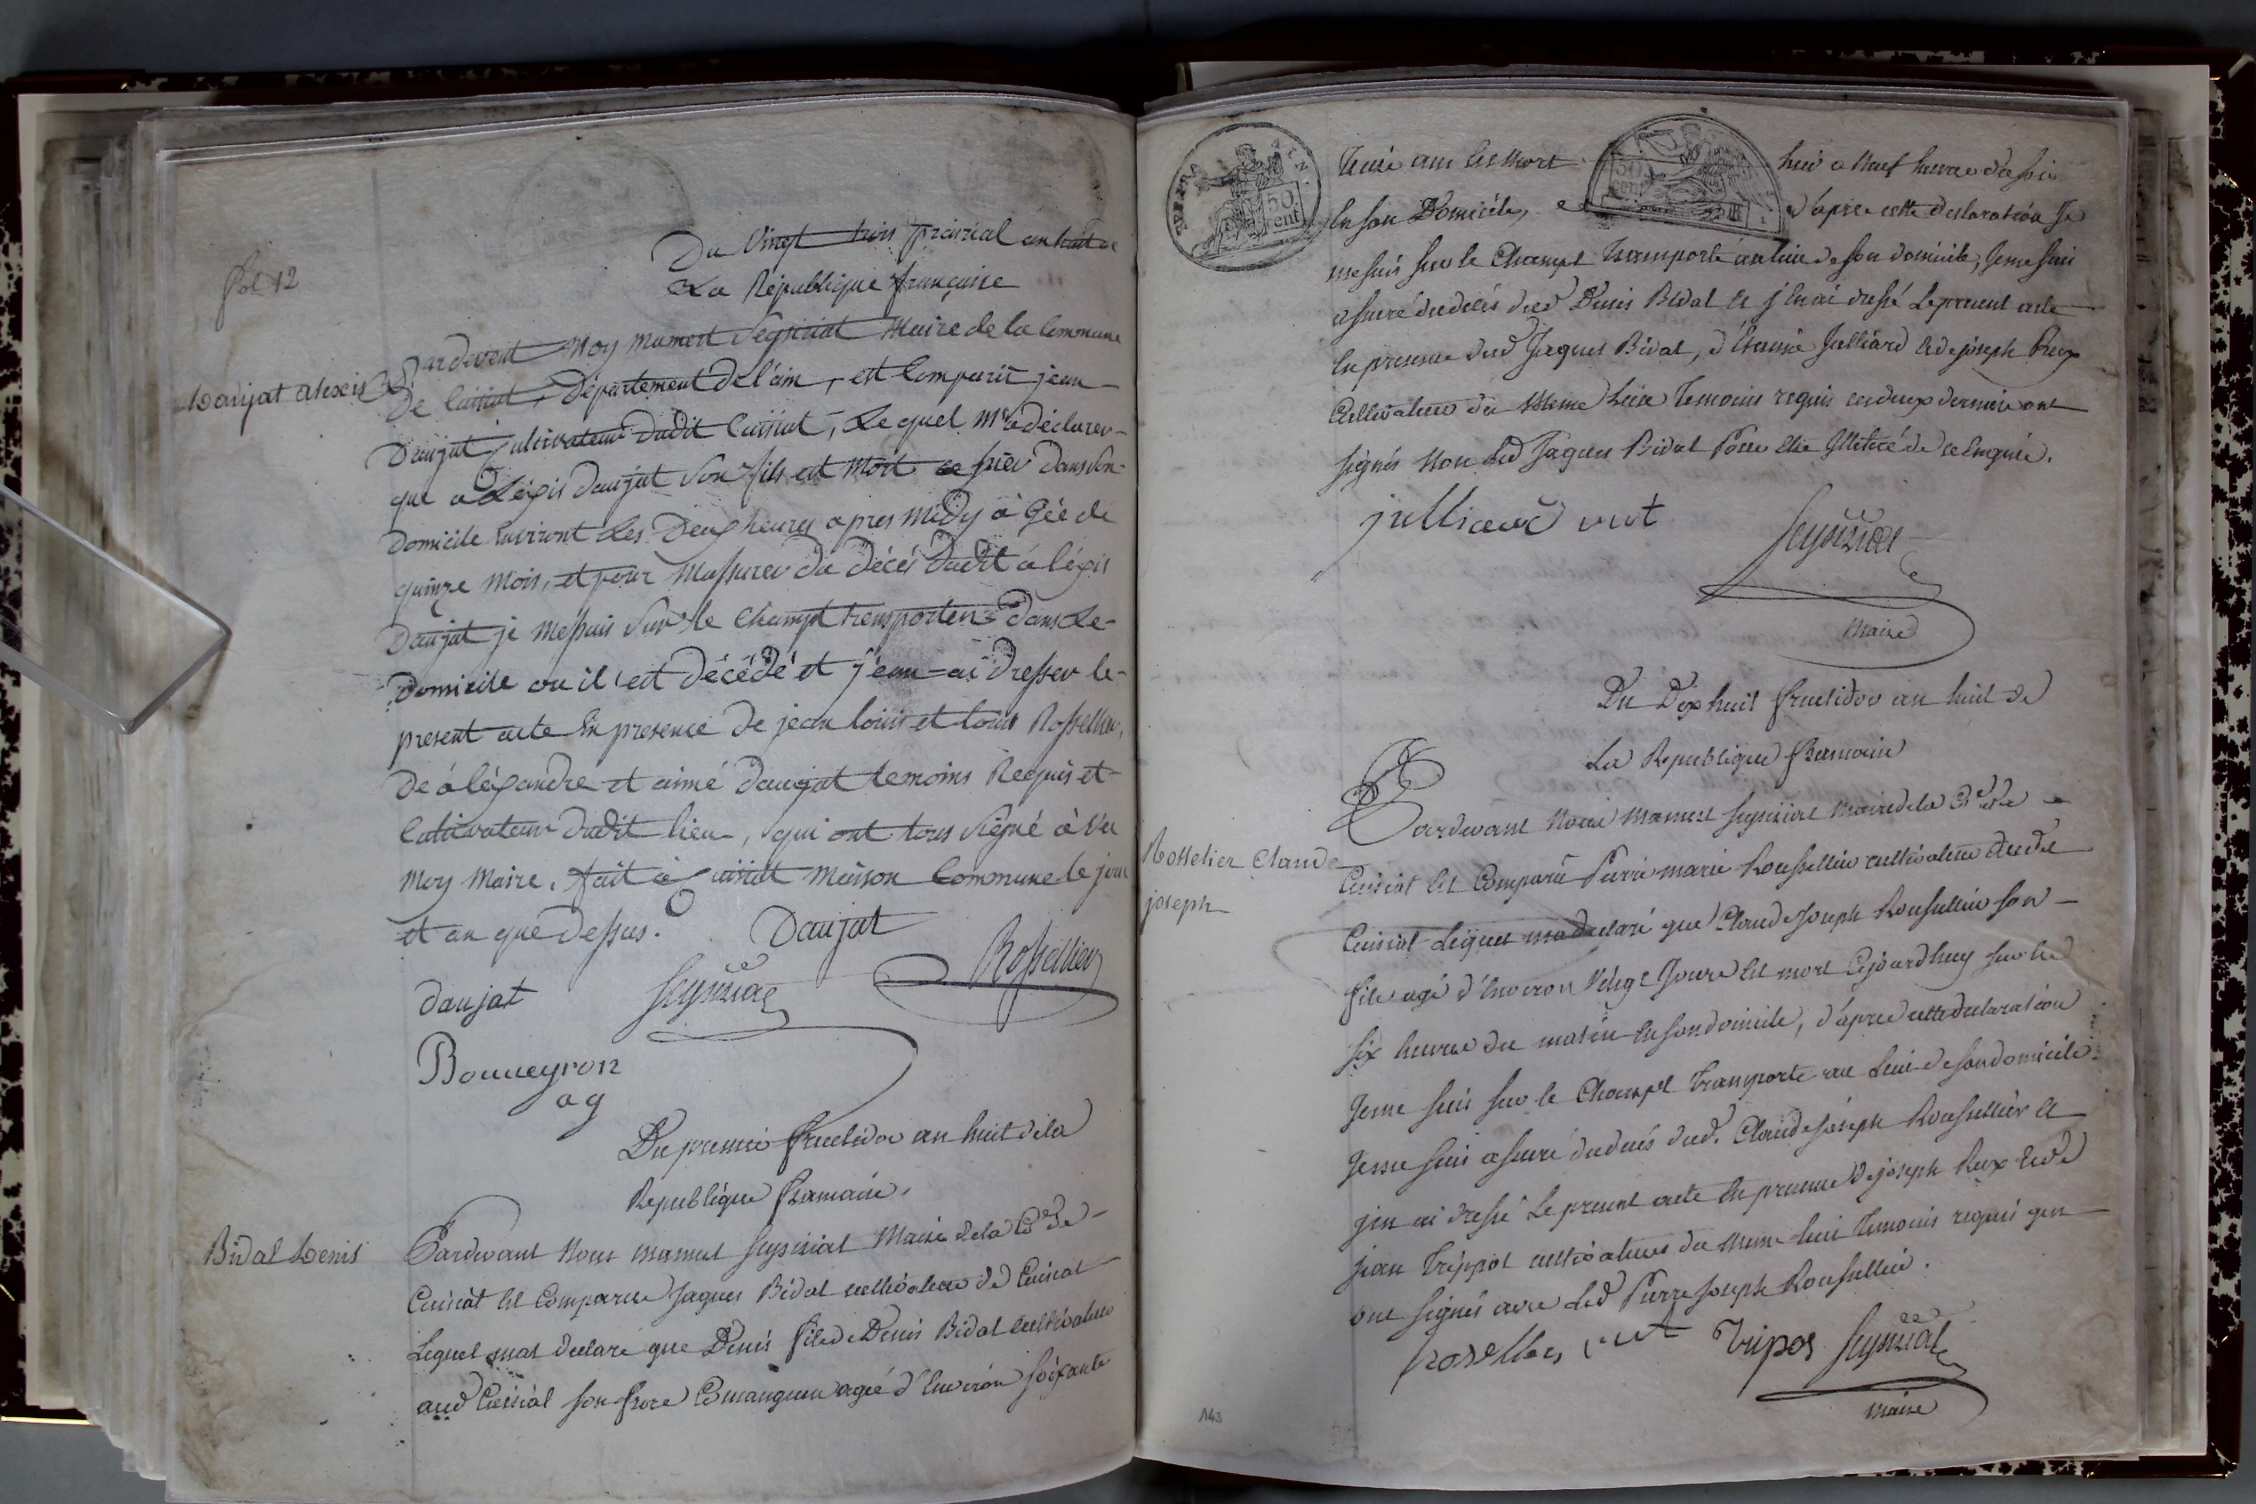 fol 12
Du Vingt trois prairial an huit de
La République française
Daujat alexis
Pardevent Moy mamert Seyssiat Maire de la Commune
De Cuisiat, Département de l'ain, est Comparû jean
Daujat Cultivateur dudit Cuisiat, Lequel M'a déclarer
que alexis daujat son fils est mort ce hier dans son
domicile environt les Deux heures apres midy à Gée de
quinze mois, et pour massurer du décés dudit aléxis
Daujat je me suis sur le Champt transporter dans Le
Domicile ou il est décédé et j'ean ai dresser le
present acte En presence de jean louis et louis Rossellier,
de aléxandre et aimé daujat temoins Requis et
Cultivateur dudit lieu, qui ont tous signé à Vec
Moy Maire. fait à Cuisiat maison Commune le jour
et an que dessus.
Daujat
Rossellier
daujat
Seyssiat
Bonneyron
ag
Du premier fructidor an huit de la
Republique francaise.
Bidal Denis
Pardevant Nous mamert Seyssiat Maire de la Cne de
Cuisiat Est Comparue Jaques Bidal cultivateur de Cuisiat
Lequel mat declaré que Denis fils de Denis Bidal cultivateur
aud Cuisiat son frere agée d'Environ soixante
Treize ans est Mort huit a neuf heures du soir
En son Domicile, d'apres cette declaration Je
me suis sur le Champt Transporté au lieu de son domicile, Je me suis
assuré du décés dud Denis Bidal et j'En ai dressé Le present acte
En presence dud Jaques Bidal, d'Etienne Julliard et de joseph Preux
Cultivateur du Meme Lieu Temoins requis ces deux derniers ont
signés Non Led Jaques Bidal Pour Etre Illiteré de ce Enquis.
julliard
Seyssiat
Maire
Du Dix huit fructidor an huit de
La Republique francaise
Rosselier Claude
joseph
Pardevant Nous Mamert Seyssiat Maire de la Cne de
Cuisiat Est Comparu Pierre marie Roussellier cultivateur dudit
Cuisiat Lequel ma declaré que Claude Joseph Roussellier son
fils agé d'Environ Vingt Jours Est mort Cejourdhuy sur les
six heures du matin En son domicile, d'apres cette declaration
Jeme suis sur le Champt Transporté au Lieu de son domicile
Jeme suis assuré du décés dud. Claude Joseph Roussellier et
j'en ai dressé Le present acte En presence de joseph et de
jean Trippoz cultivateurs du meme lieu Temoins requis qui
ont signés avec Led Pierre Joseph Roussellier.
roselier
Tripoz
Seyssiat
Maire
143